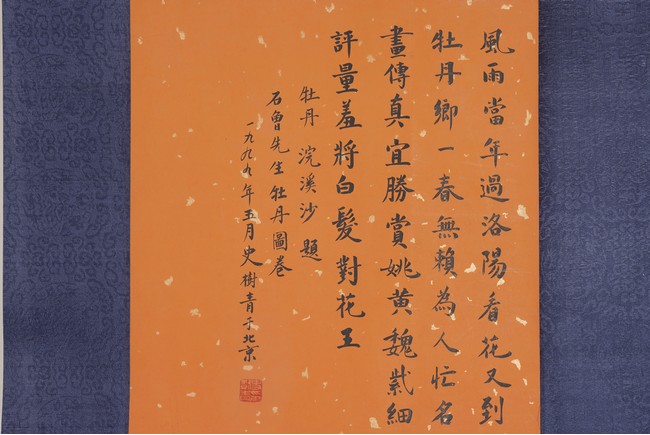 風雨當年過洛陽看花又到
牡丹鄉一春無賴為人忙名
畫傳真宜勝賞姚黄魏紫細
評量羞將白髮對花王
牡丹 浣溪沙 題
石魯先生牡丹圖卷
一九九九年五月史樹青于北京